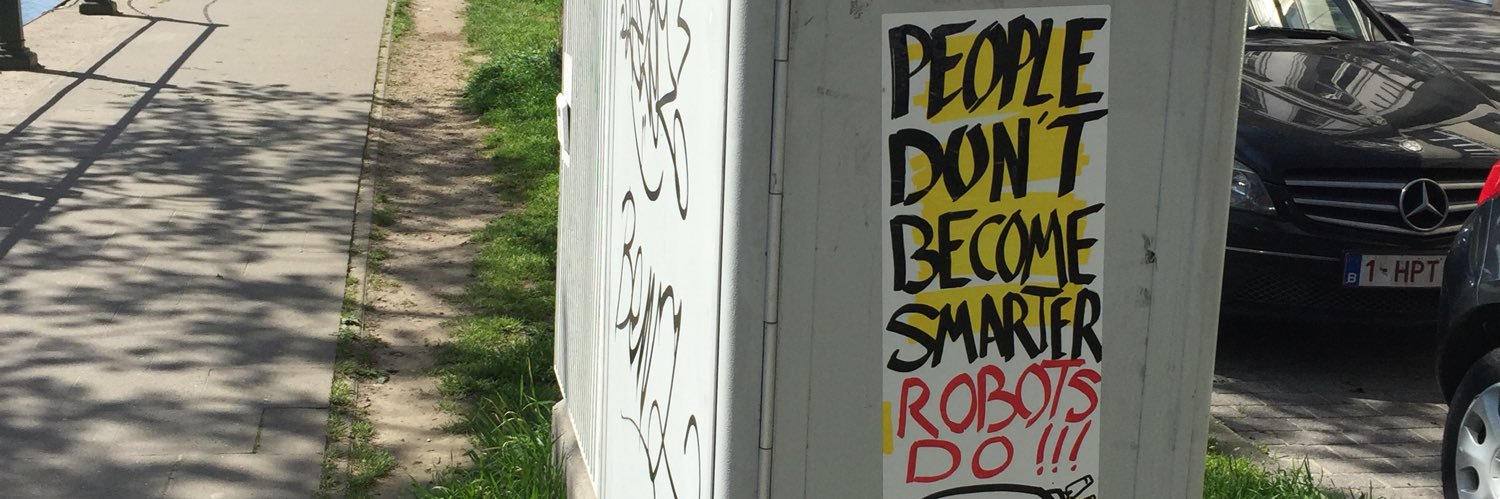 PEOPLE
DON'T
BECOME
SMARTER
ROBOTS
DO!!!
B 1-HPT